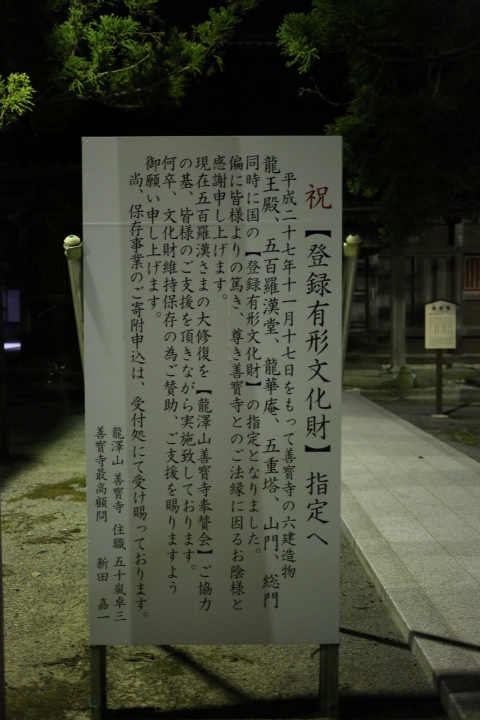 祝【登録有形文化財】指定へ
平成二十七年十一月十七日をもって善寳寺の六建造物
龍王殿、五百羅漢堂、龍華庵、五重塔、山門、総門
同時に国の【登録有形文化財】の指定となりました。
偏に皆様よりの篤き、尊き善寳寺とのご法縁に因るお陰様と
感謝申し上げます。
現在五百羅漢さまの大修復を【龍澤山善寳寺奉賛会】ご協力
の基、皆様のご支援を頂きながら実施致しております。
何卒、文化財維持保存の為ご賛助、ご支援を賜りますよう
御願い申し上げます。
尚、保存事業のご寄附申込は、受付処にて受け賜っております。
龍澤山 善寳寺 住職 五十嵐卓三
善寳寺最高顧問 新田 嘉一